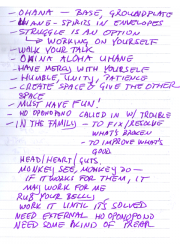 - OHANA - BASE, GROUNDPLATE
UHANE - SPIRITS IN ENVELOPES
- STRUGGLE IS AN OPTION
↳ WORKING ON YOURSELF
- WALK YOUR TALK
- OHINA ALOHA UHANE
- HAVE MERCY WITH YOURSELF
- HUMBLE, UNITY, PATIENCE
- CREATE SPACE & GIVE THE OTHER
SPACE
- MUST HAVE FUN!
- HO OPONOPONO CALLED IN W/ TROUBLE
- IN THE FAMILY - TO FIX/RESOLVE
WHAT'S BROKEN
- TO IMPROVE WHAT'S
GOOD
HEAD/HEART/GUTS.
MONKEY SEE, MONKEY DO -
IF IT WORKS FOR THEM, IT
MAY WORK FOR ME
RUB YOUR BELLY
WORK IT UNTIL IT'S SOLVED
NEED EXTERNAL HO OPONOPONO
NEED SOME KIND OF PRAYER